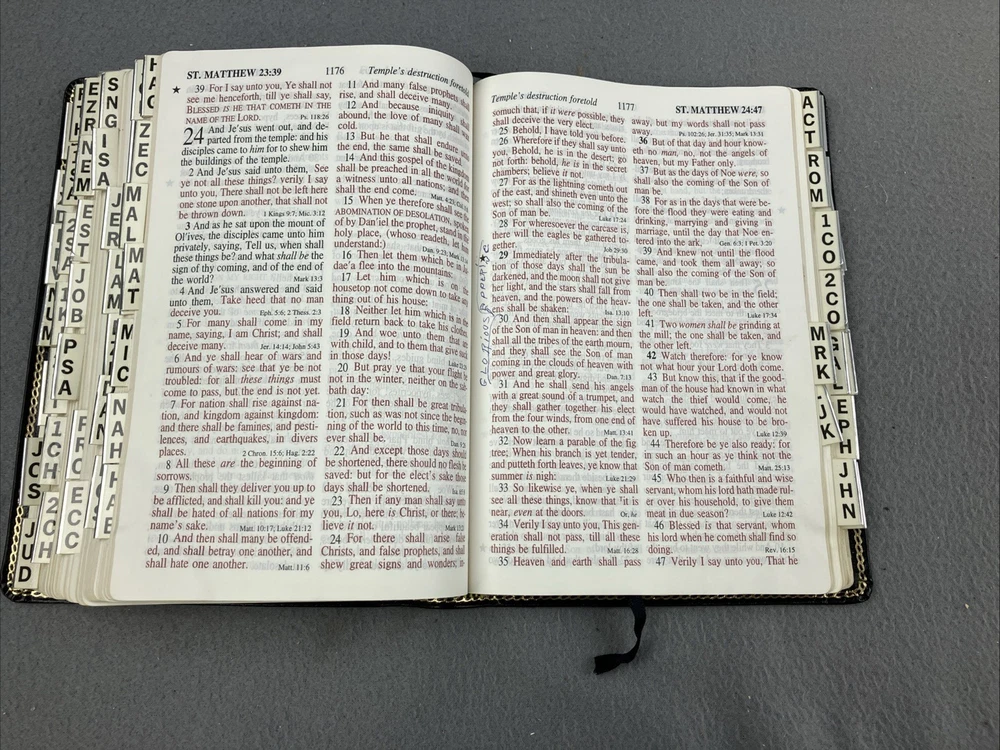 ST. MATTHEW 23:39
1176
Temple's destruction foretold
★ 39 For I say unto you, Ye shall not
see me henceforth, till ye shall say,
BLESSED IS HE THAT COMETH IN THE
NAME OF THE LORD. Ps. 118:26
24 And Je'sus went out, and de-
parted from the temple: and his
disciples came to him for to shew him
the buildings of the temple.
2 And Je'sus said unto them, See
ye not all these things? verily I say
unto you, There shall not be left here
one stone upon another, that shall not
be thrown down. 1 Kings 9:7, Mic. 3:12
3 And as he sat upon the mount of
Ol'ives, the disciples came unto him
privately, saying, Tell us, when shall
these things be? and what shall be the
sign of thy coming, and of the end of
the world? Mark 13:3
4 And Je'sus answered and said
unto them, Take heed that no man
deceive you. Eph. 5:6; 2 Thess. 2:3
5 For many shall come in my
name, saying, I am Christ; and shall
deceive many. Jer. 14:14; John 5:43
6 And ye shall hear of wars and
rumours of wars: see that ye be not
troubled: for all these things must
come to pass, but the end is not yet.
7 For nation shall rise against na-
tion, and kingdom against kingdom:
and there shall be famines, and pesti-
lences, and earthquakes, in divers
places. 2 Chron. 15:6; Hag. 2:22
8 All these are the beginning of
sorrows.
9 Then shall they deliver you up to
be afflicted, and shall kill you: and ye
shall be hated of all nations for my
name's sake. Matt. 10:17; Luke 21:12
10 And then shall many be offend-
ed, and shall betray one another, and
shall hate one another. Matt. 11:6
11 And many false prophets shall
rise, and shall deceive many.
12 And because iniquity shall
abound, the love of many shall wax
cold.
13 But he that shall endure unto
the end, the same shall be saved.
14 And this gospel of the kingdom
shall be preached in all the world for
a witness unto all nations; and then
shall the end come. Matt. 4:23;
15 When ye therefore shall see the
ABOMINATION OF DESOLATION, spoken
of by Dan'iel the prophet, stand in the
holy place, (whoso readeth, let him
understand:) Dan. 9:23;
16 Then let them which be in Ju-
dae'a flee into the mountains:
17 Let him which is on the
housetop not come down to take any
thing out of his house:
18 Neither let him which is in the
field return back to take his clothes.
19 And woe unto them that are
with child, and to them that give suck
in those days!
20 But pray ye that your flight be
not in the winter, neither on the sab-
bath day:
21 For then shall be great tribula-
tion, such as was not since the begin-
ning of the world to this time, no, nor
ever shall be.
22 And except those days should
be shortened, there should no flesh be
saved: but for the elect's sake those
days shall be shortened.
23 Then if any man shall say unto
you, Lo, here is Christ, or there; be-
lieve it not.
24 For there shall arise false
Christs, and false prophets, and shall
shew great signs and wonders; in-
Temple's destruction foretold
1177
ST. MATTHEW 24:47
somuch that, if it were possible, they
shall deceive the very elect.
25 Behold, I have told you before.
26 Wherefore if they shall say unto
you, Behold, he is in the desert; go
not forth: behold, he is in the secret
chambers; believe it not.
27 For as the lightning cometh out
of the east, and shineth even unto the
west; so shall also the coming of the
Son of man be. Luke 17:24
28 For wheresoever the carcase is,
there will the eagles be gathered to-
gether. Job 29:30
29 Immediately after the tribula-
tion of those days shall the sun be
darkened, and the moon shall not give
her light, and the stars shall fall from
heaven, and the powers of the heav-
ens shall be shaken: Isa. 13:10
30 And then shall appear the sign
of the Son of man in heaven: and then
shall all the tribes of the earth mourn,
and they shall see the Son of man
coming in the clouds of heaven with
power and great glory. Dan. 7:13
31 And he shall send his angels
with a great sound of a trumpet, and
they shall gather together his elect
from the four winds, from one end of
heaven to the other. Matt. 13:41
32 Now learn a parable of the fig
tree; When his branch is yet tender,
and putteth forth leaves, ye know that
summer is nigh: Luke 21:29
33 So likewise ye, when ye shall
see all these things, know that it is
near, even at the doors. Or, he
34 Verily I say unto you, This gen-
eration shall not pass, till all these
things be fulfilled. Matt. 16:28
35 Heaven and earth shall pass
away, but my words shall not pass
away. Ps. 102:26; Jer. 31:35; Mark 13:31
36 But of that day and hour know-
eth no man, no, not the angels of
heaven, but my Father only.
37 But as the days of Noe were, so
shall also the coming of the Son of
man be.
38 For as in the days that were be-
fore the flood they were eating and
drinking, marrying and giving in
marriage, until the day that Noe en-
tered into the ark. Gen. 6:3; 1 Pet. 3:20
39 And knew not until the flood
came, and took them all away; so
shall also the coming of the Son of
man be.
40 Then shall two be in the field;
the one shall be taken, and the other
left. Luke 17:34
41 Two women shall be grinding at
the mill; the one shall be taken, and
the other left.
42 Watch therefore: for ye know
not what hour your Lord doth come.
43 But know this, that if the good-
man of the house had known in what
watch the thief would come, he
would have watched, and would not
have suffered his house to be bro-
ken up. Luke 12:39
44 Therefore be ye also ready: for
in such an hour as ye think not the
Son of man cometh. Matt. 25:13
45 Who then is a faithful and wise
servant, whom his lord hath made rul-
er over his household, to give them
meat in due season? Luke 12:42
46 Blessed is that servant, whom
his lord when he cometh shall find so
doing. Rev. 16:15
47 Verily I say unto you, That he
EZR
NEM
EST
JOB
PSA
PRO
ECC
SNG
ISA
JER
LAM
ZEC
MAL
MAT
MIC
NAH
HAB
NUM
JOS
JUD
1CH
2CH
ACT
ROM
1CO
2CO
GAL
EPH
MRK
LUK
JHN